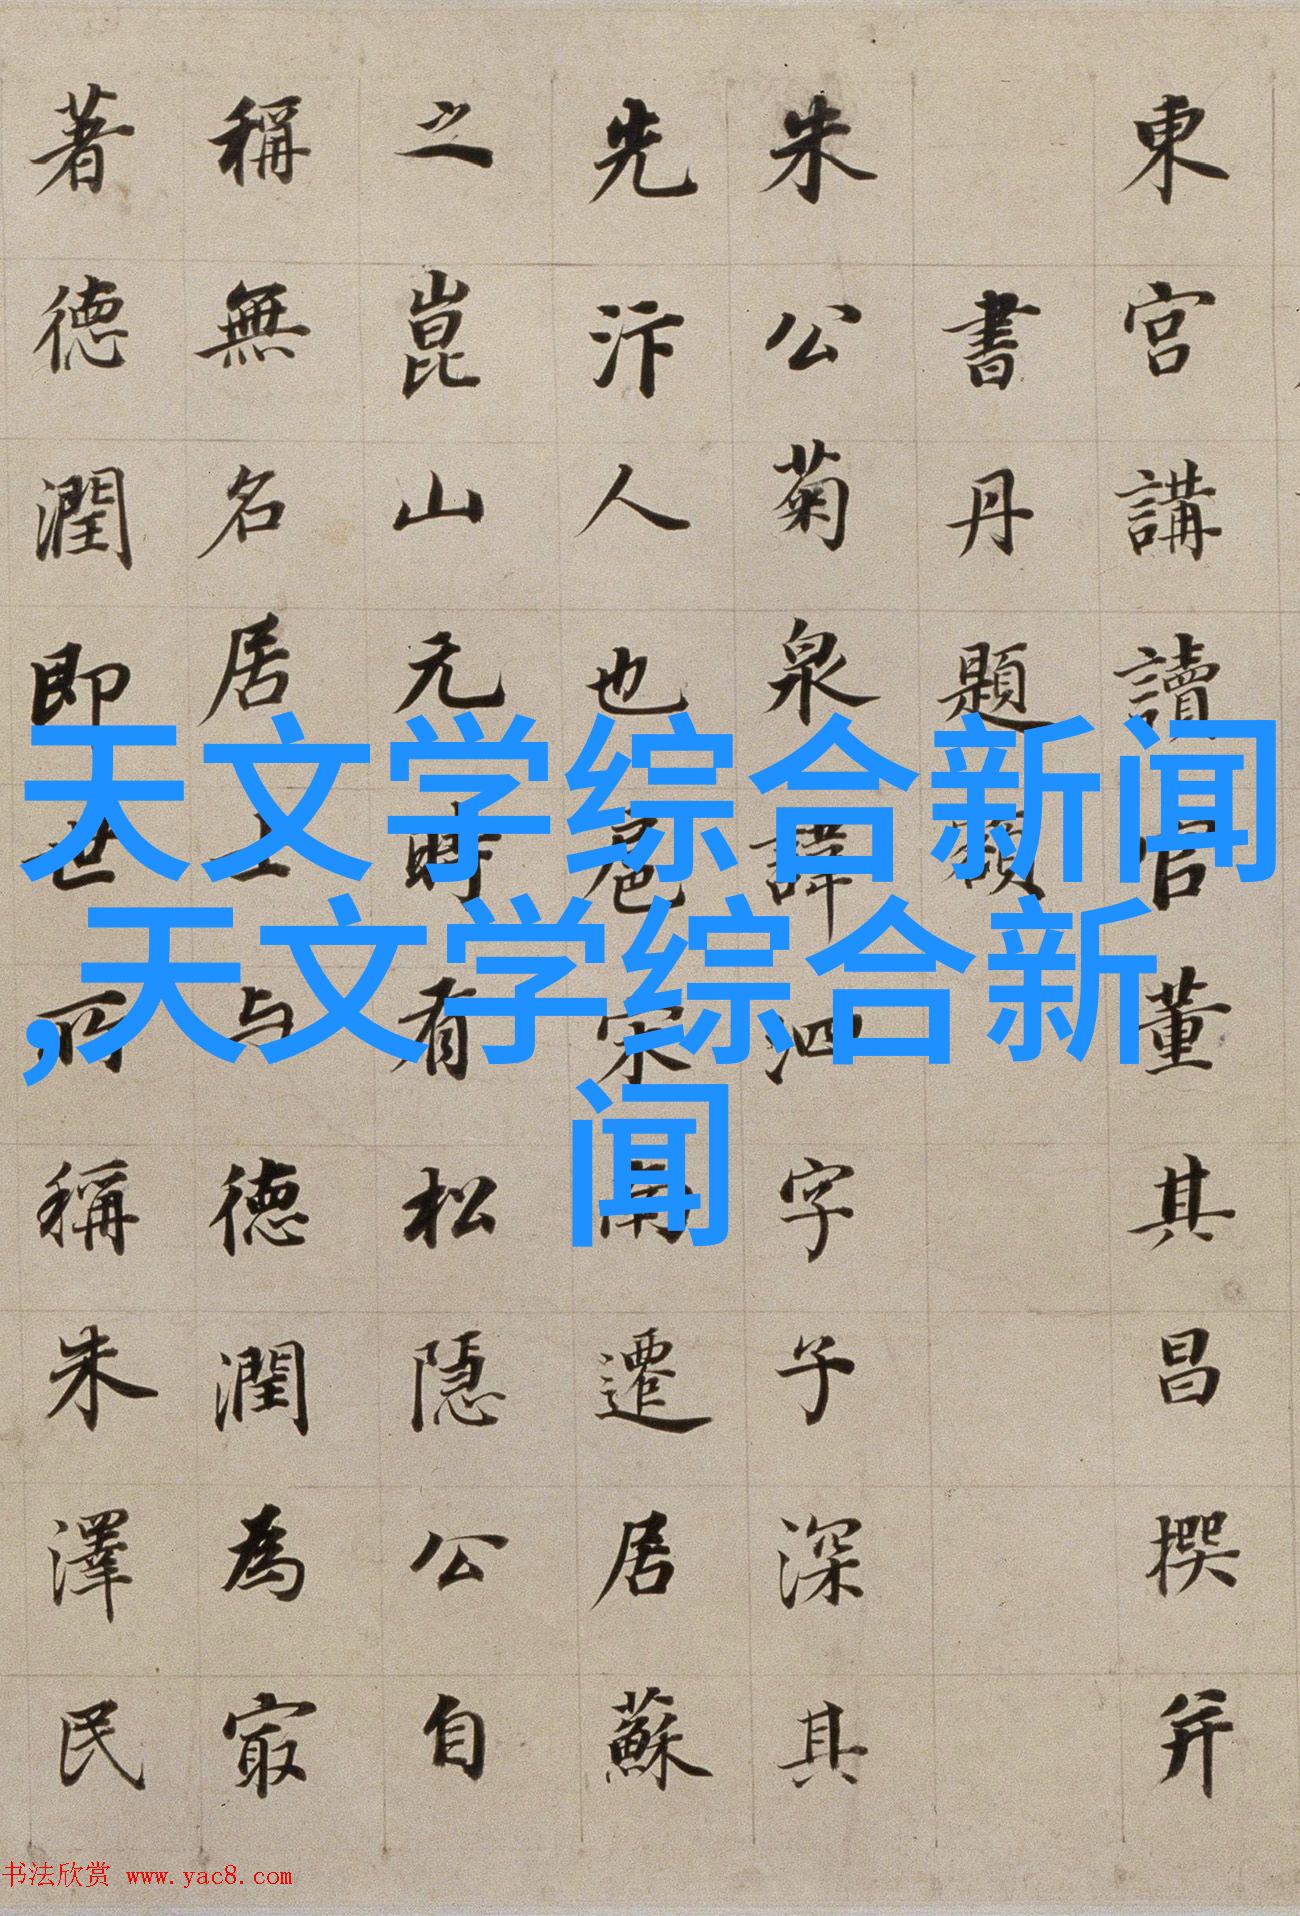 東宮講讀官董其昌撰并
書丹題額
朱公菊泉諱泗字子深其
先汴人也扈宋南遷居蘇
之崑山元時有松隱公自
稱無名居士与德潤為㝡
著德潤即世所稱朱澤民
天文学综合新闻
,天文学综合新
闻
书法欣赏 www.yac8.com